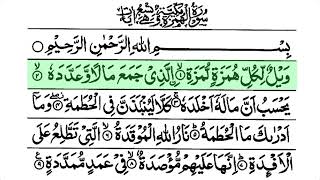 سورة الهمزة مكية وهي تسع آيات
بِسْمِ اللهِ الرَّحْمٰنِ الرَّحِيْمِ
وَيْلٌ لِّكُلِّ هُمَزَةٍ لُّمَزَةِ ۙ۝١ اۨلَّذِيْ جَمَعَ مَالًا وَّعَدَّدَهٗ ۙ۝٢
يَحْسَبُ اَنَّ مَالَهٗۤ اَخْلَدَهٗ ۚ۝٣ كَلَّا لَيُنْۢبَذَنَّ فِي الْحُطَمَةِ ۖ۝٤ وَمَاۤ
اَدْرٰىكَ مَا الْحُطَمَةُ ؕ۝٥ نَارُ اللهِ الْمُوْقَدَةُ ۙ۝٦ الَّتِيْ تَطَّلِعُ عَلَى
الْاَفْـِٕدَةِ ؕ۝٧ اِنَّهَا عَلَيْهِمْ مُّؤْصَدَةٌ ۙ۝٨ فِيْ عَمَدٍ مُّمَدَّدَةٍ ۝٩